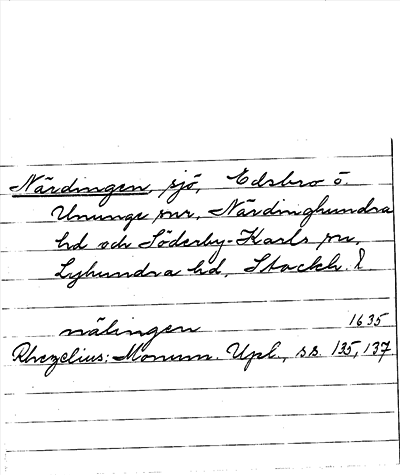 Närdingen, sjö, Edsbro o.
Ununge snr, Närdinghundra
hd och Söderby-Karls sn,
Lyhundra hd, Stockh. l
nälingen 1635
Rhezelius: Monum. Upl., ss. 135, 137